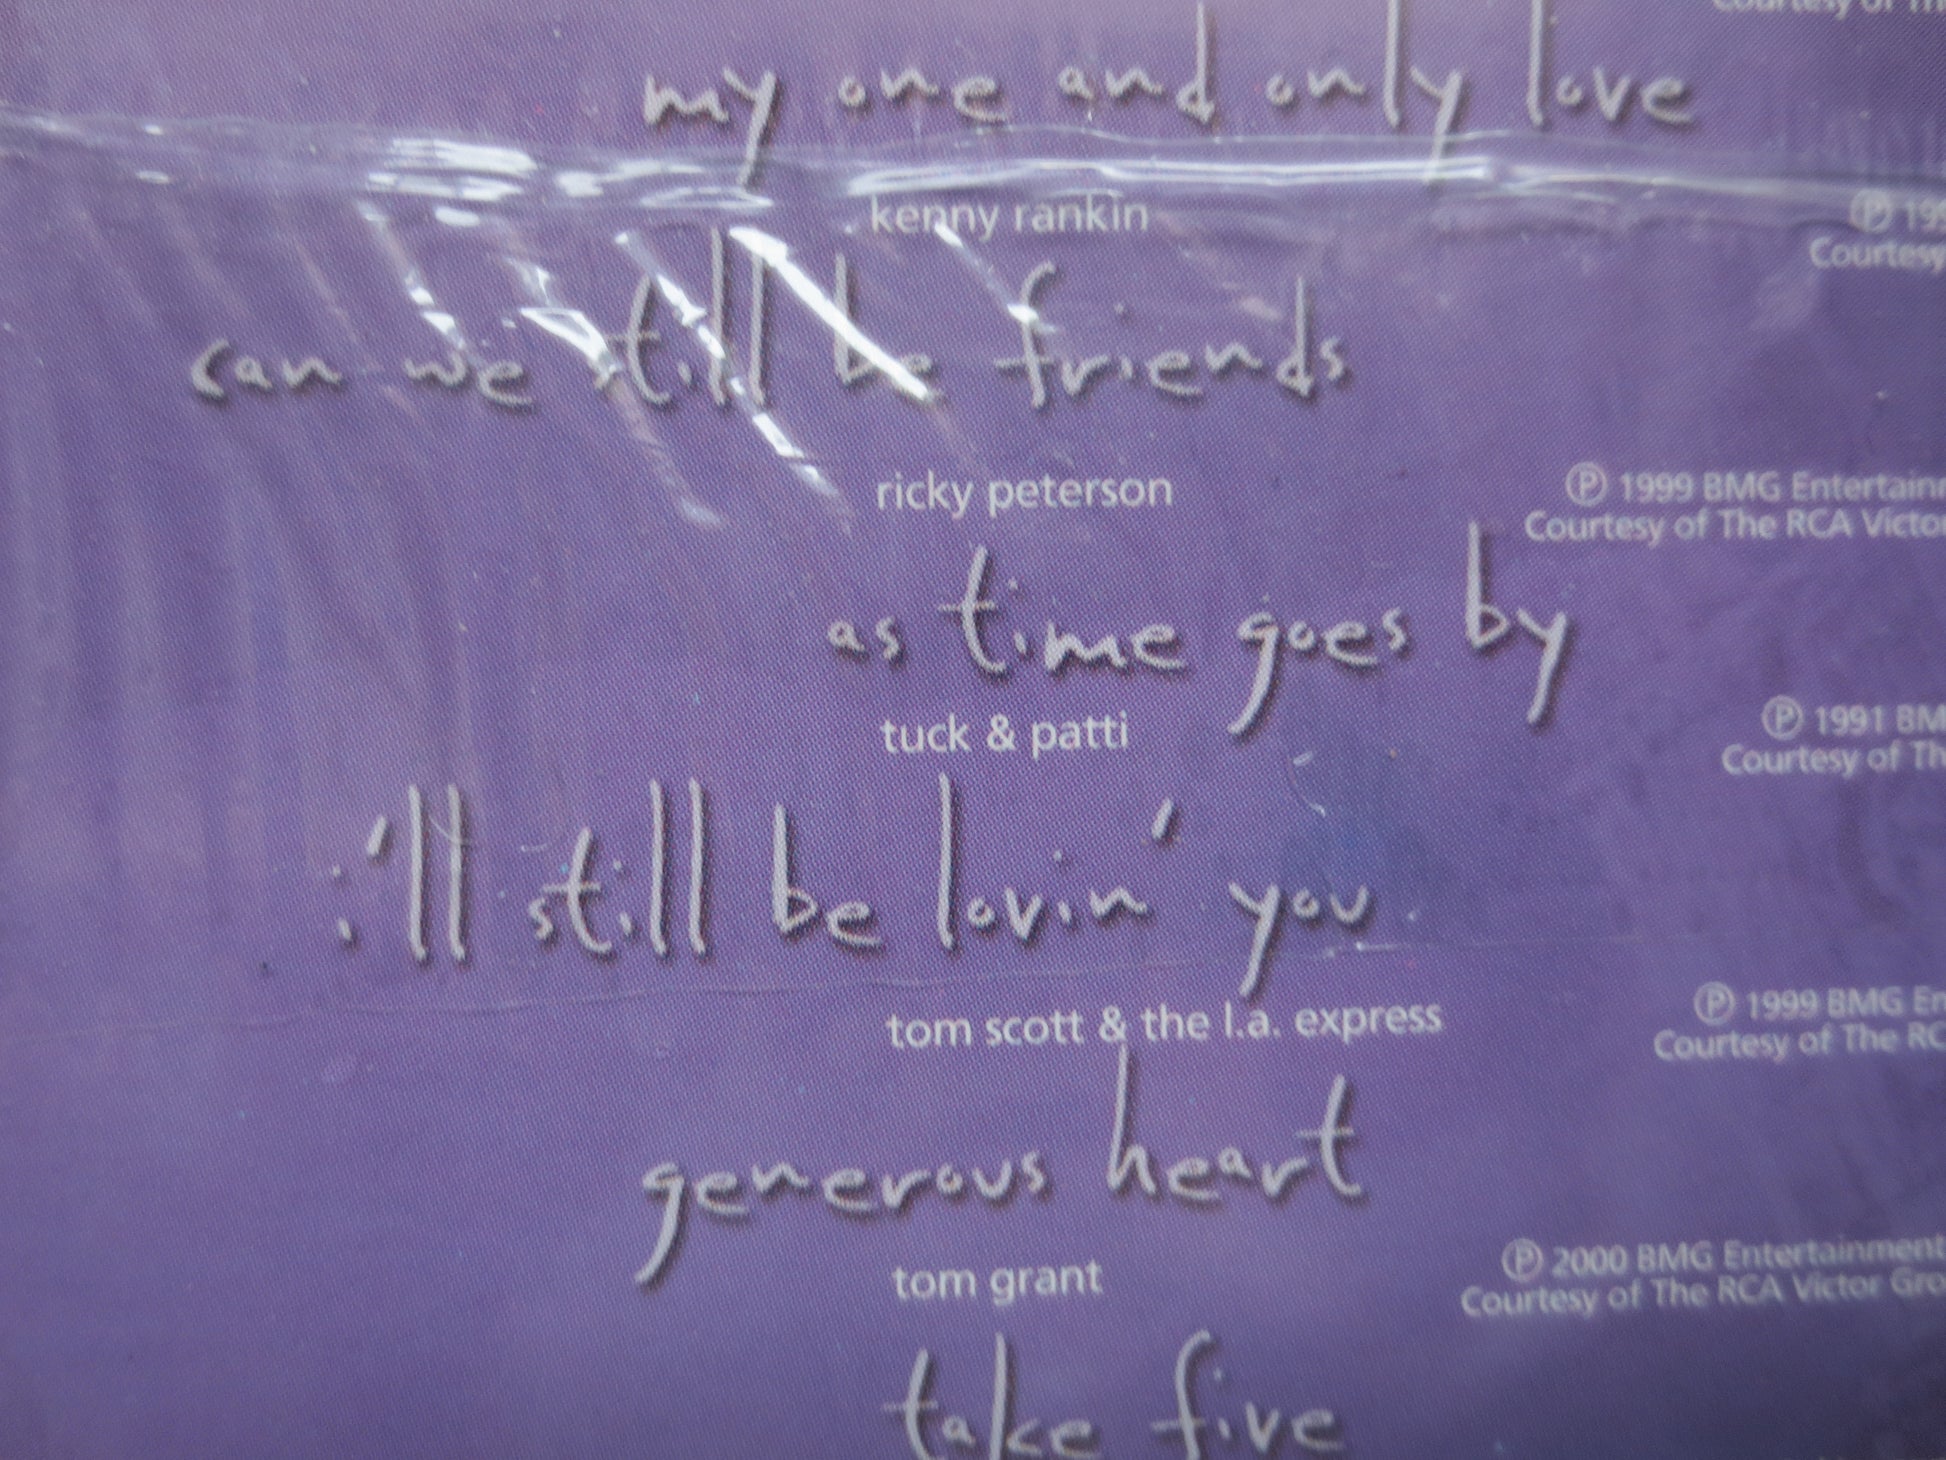 Courtesy of
my one and only love
kenny rankin
Ⓟ 199
Courtesy
can we still be friends
ricky peterson
Ⓟ 1999 BMG Entertainm
Courtesy of The RCA Victo
as time goes by
tuck & patti
Ⓟ 1991 BM
Courtesy of Th
i'll still be lovin' you
tom scott & the l.a. express
Ⓟ 1999 BMG En
Courtesy of The RC
generous heart
tom grant
Ⓟ 2000 BMG Entertainment
Courtesy of The RCA Victor Gro
take five